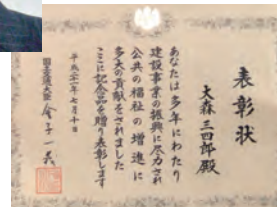 表彰状
大森三四郎殿
あなたは多年にわたり
建設事業の振興に尽力され
公共の福祉の増進に
多大の貢献をされました
ここに記念品を贈り表彰します
平成二十一年七月十日
国土交通大臣 金子一義